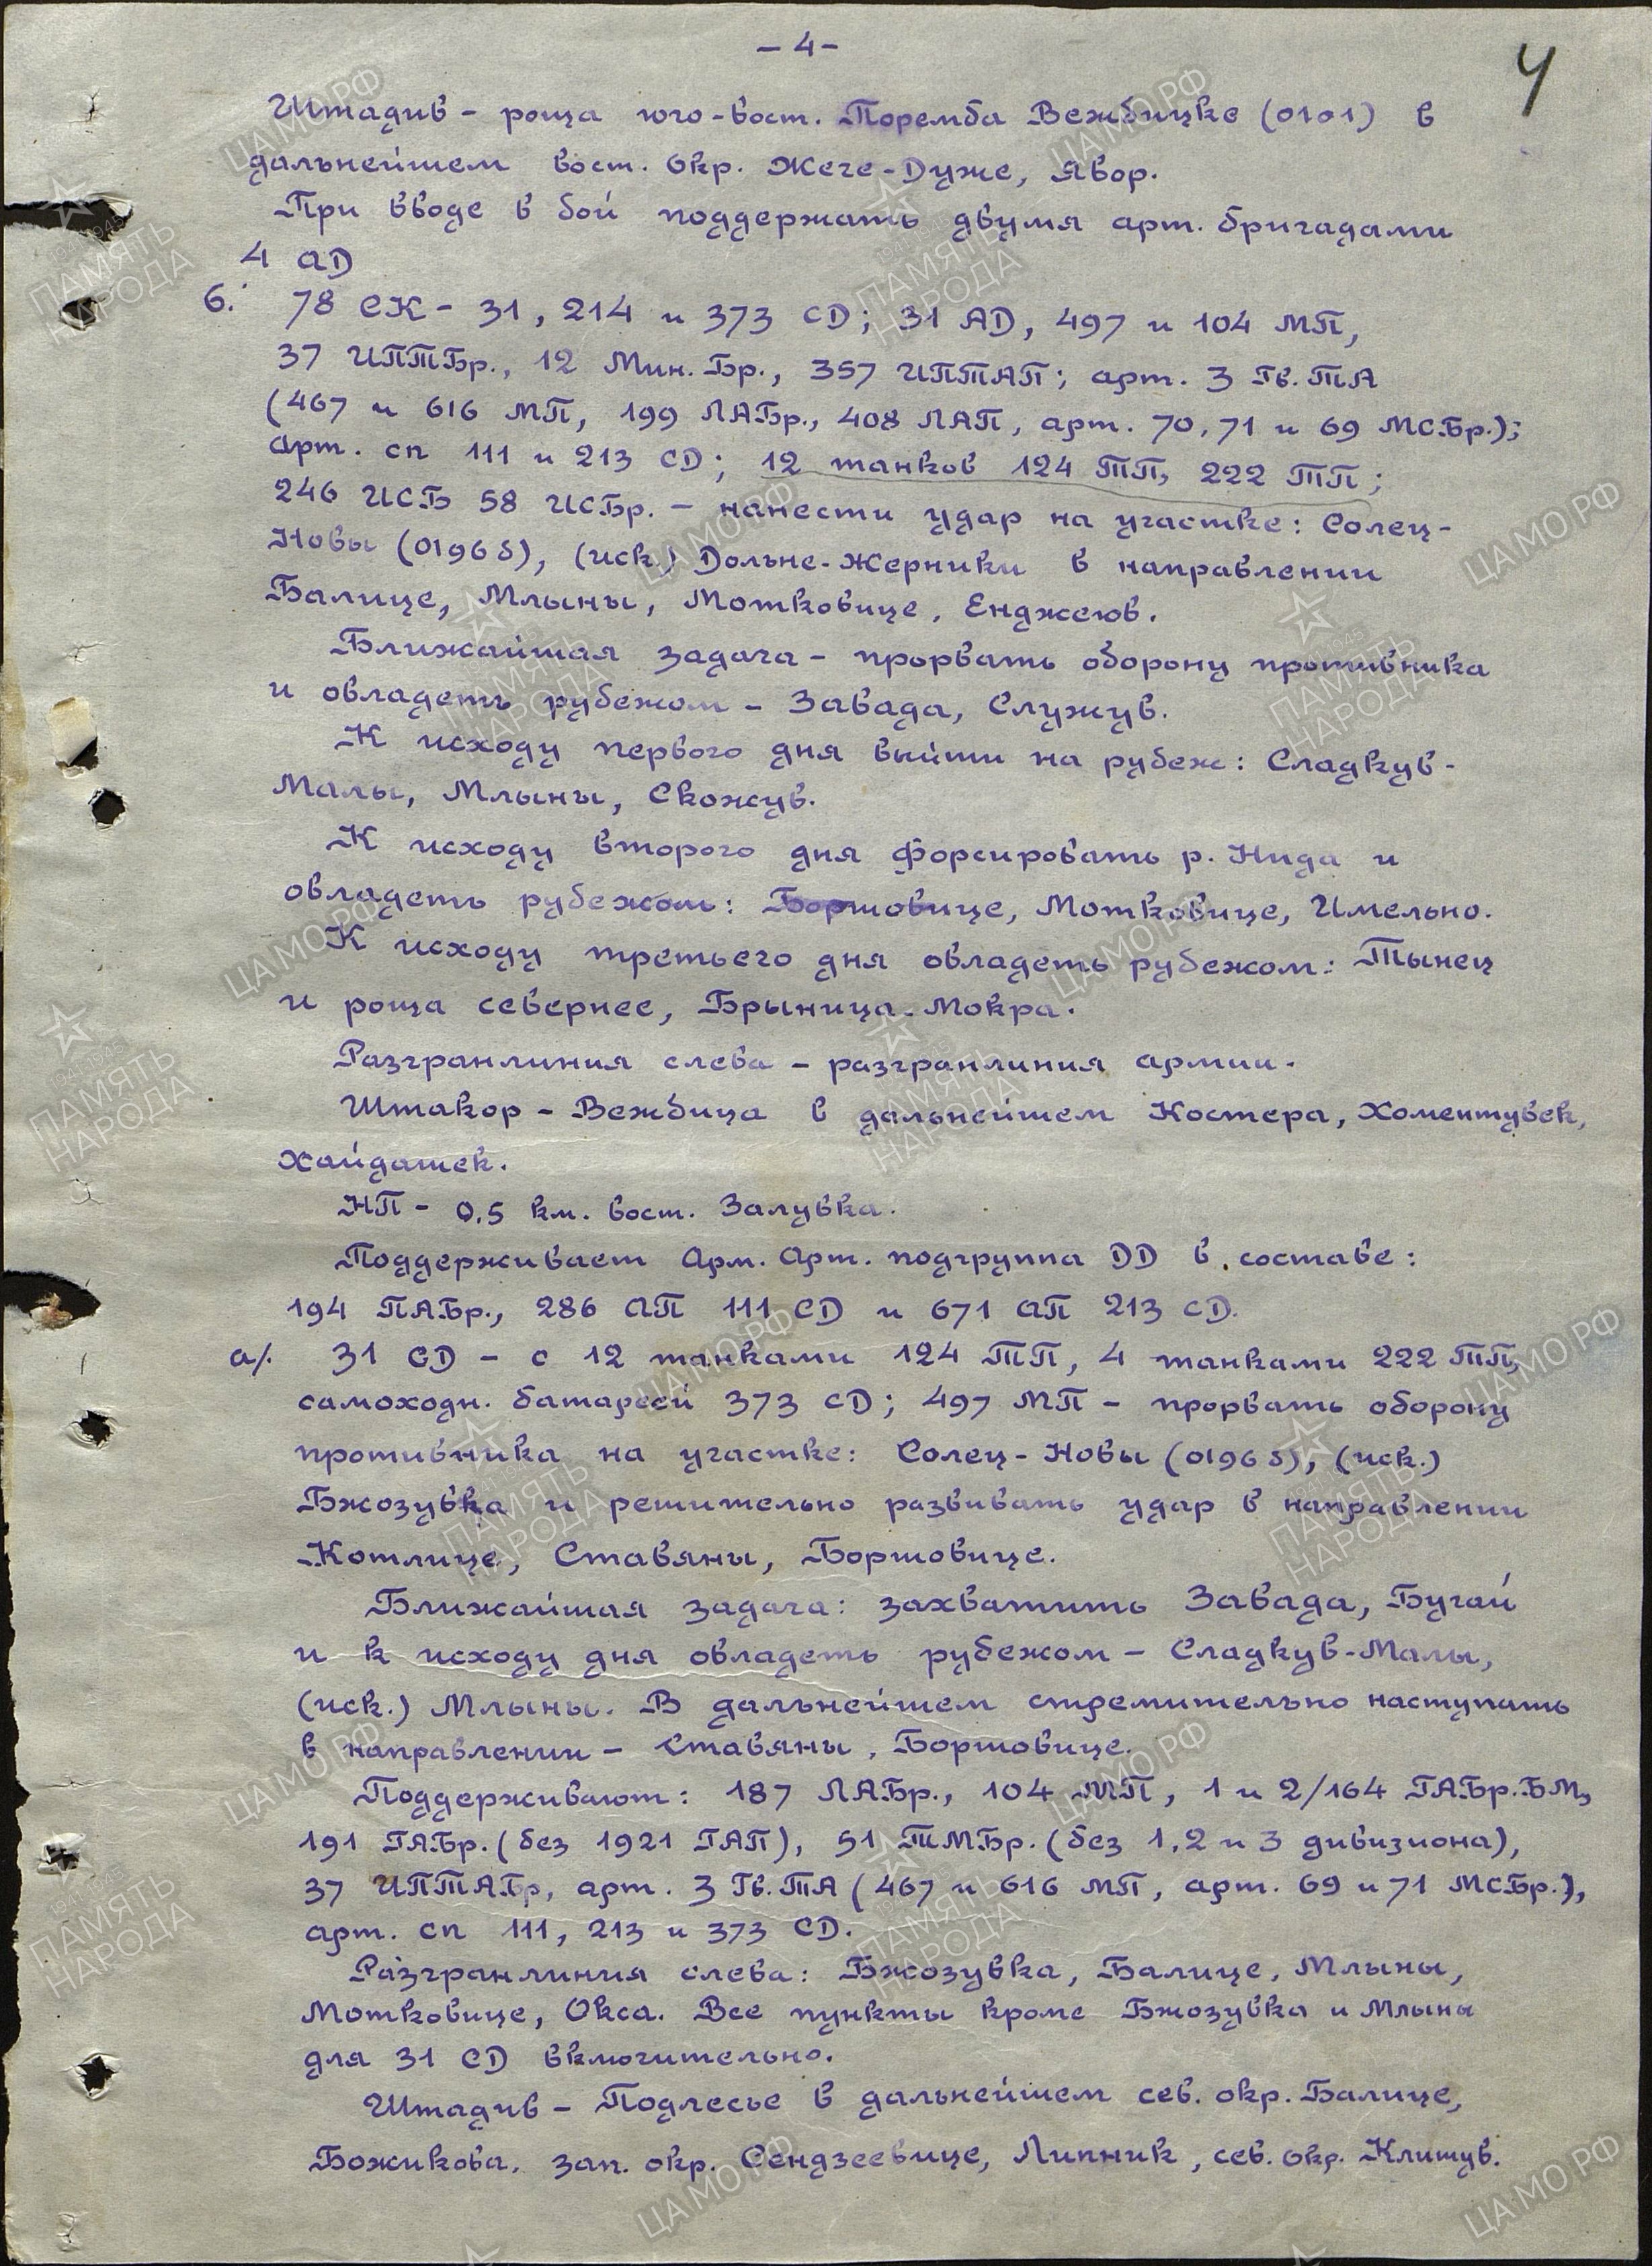 - 4 -
4
Штадив - роща юго-вост. Поремба Вежбицке (0101) в
дальнейшем вост. окр. Жече-Дуже, Явор.
При вводе в бой поддержать двумя арт. бригадами
4 АД
6. 78 СК - 31, 214 и 373 СД; 31 АД, 497 и 104 МП,
37 ИПТБр., 12 Мин. Бр., 357 ИПТАП; арт. 3 Гв. ТА
(467 и 616 МП, 199 ЛАБр., 408 ЛАП, арт. 70, 71 и 69 МСБр.);
арт. сп 111 и 213 СД; 12 танков 124 ТП, 222 ТП;
246 ИСБ 58 ИСБр. - нанести удар на участке: Солец-
Новы (0196 б), (иск.) Дольне-Жерники в направлении
Балице, Млыны, Мотковице, Енджеюв.
Ближайшая задача - прорвать оборону противника
и овладеть рубежом - Завада, Служув.
К исходу первого дня выйти на рубеж: Сладкув-
Малы, Млыны, Скожув.
К исходу второго дня форсировать р. Нида и
овладеть рубежом: Боршовице, Мотковице, Имельно.
К исходу третьего дня овладеть рубежом: Тынец
и роща севернее, Брыница-Мокра.
Разгранлиния слева - разгранлиния армии.
Штакор - Вежбица в дальнейшем Костера, Хоментувек,
Хайдашек.
НП - 0,5 км. вост. Залувка.
Поддерживает Арм. Арт. подгруппа ДД в составе:
194 ПАБр., 286 АП 111 СД и 671 АП 213 СД.
а/. 31 СД - с 12 танками 124 ТП, 4 танками 222 ТП,
самоходн. батареей 373 СД; 497 МП - прорвать оборону
противника на участке: Солец-Новы (0196 б), (иск.)
Бжозувка и решительно развивать удар в направлении
Котлице, Ставяны, Боршовице.
Ближайшая задача: захватить Завада, Бугай
и к исходу дня овладеть рубежом - Сладкув-Малы,
(иск.) Млыны. В дальнейшем стремительно наступать
в направлении - Ставяны, Боршовице.
Поддерживают: 187 ЛАБр., 104 МП, 1 и 2/164 ГАБр.БМ,
191 ГАБр. (без 1921 ГАП), 51 ТМБр. (без 1, 2 и 3 дивизиона),
37 ИПТАБр, арт. 3 Гв. ТА (467 и 616 МП, арт. 69 и 71 МСБр.),
арт. сп 111, 213 и 373 СД.
Разгранлиния слева: Бжозувка, Балице, Млыны,
Мотковице, Окса. Все пункты кроме Бжозувка и Млыны
для 31 СД включительно.
Штадив - Подлесье в дальнейшем сев. окр. Балице,
Божикова, зап. окр. Сендзеевице, Липник, сев. окр. Климув.